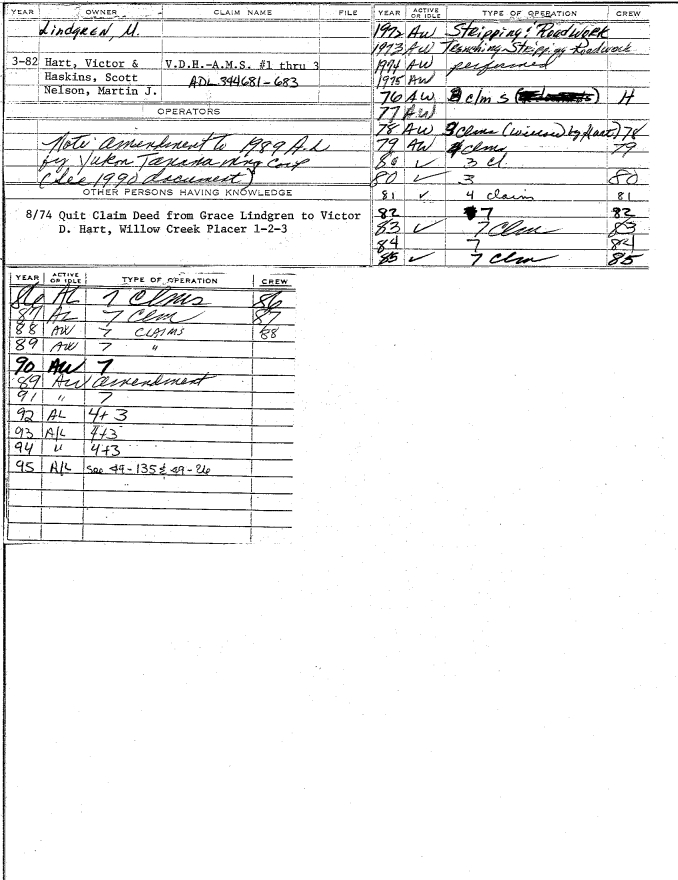 YEAR OWNER CLAIM NAME FILE
Lindgren, M.
3-82 Hart, Victor & V.D.H.-A.M.S. #1 thru 3
Haskins, Scott ADL 344681-683
Nelson, Martin J.
OPERATORS
Note: amendment to 1989 A.L
by Yukon Tanana mng Corp
(See 1990 document)
OTHER PERSONS HAVING KNOWLEDGE
8/74 Quit Claim Deed from Grace Lindgren to Victor
D. Hart, Willow Creek Placer 1-2-3
YEAR ACTIVE OR IDLE TYPE OF OPERATION CREW
1972 AW Stripping & Roadwork
1973 AW Trenching Stripping Roadwork
1974 AW performed
1975 AW
76 AW clms H
77 AW
78 AW clms 78
79 AW clms 79
80 ✓ 3 cl.
80 ✓ 3 80
81 ✓ 4 claim 81
82 7 82
83 ✓ 7 Clm 83
84 7 84
85 ✓ 7 clm 85
YEAR ACTIVE OR IDLE TYPE OF OPERATION CREW
86 AL 7 Clms 86
87 AL 7 Clm 87
88 AW 7 CLAIMS 88
89 AW 7 "
90 AW 7
89 AW amendment
91 " 7
92 AL 4+3
93 A/L 4+3
94 " 4+3
95 A/L see 49-135 & 49-26